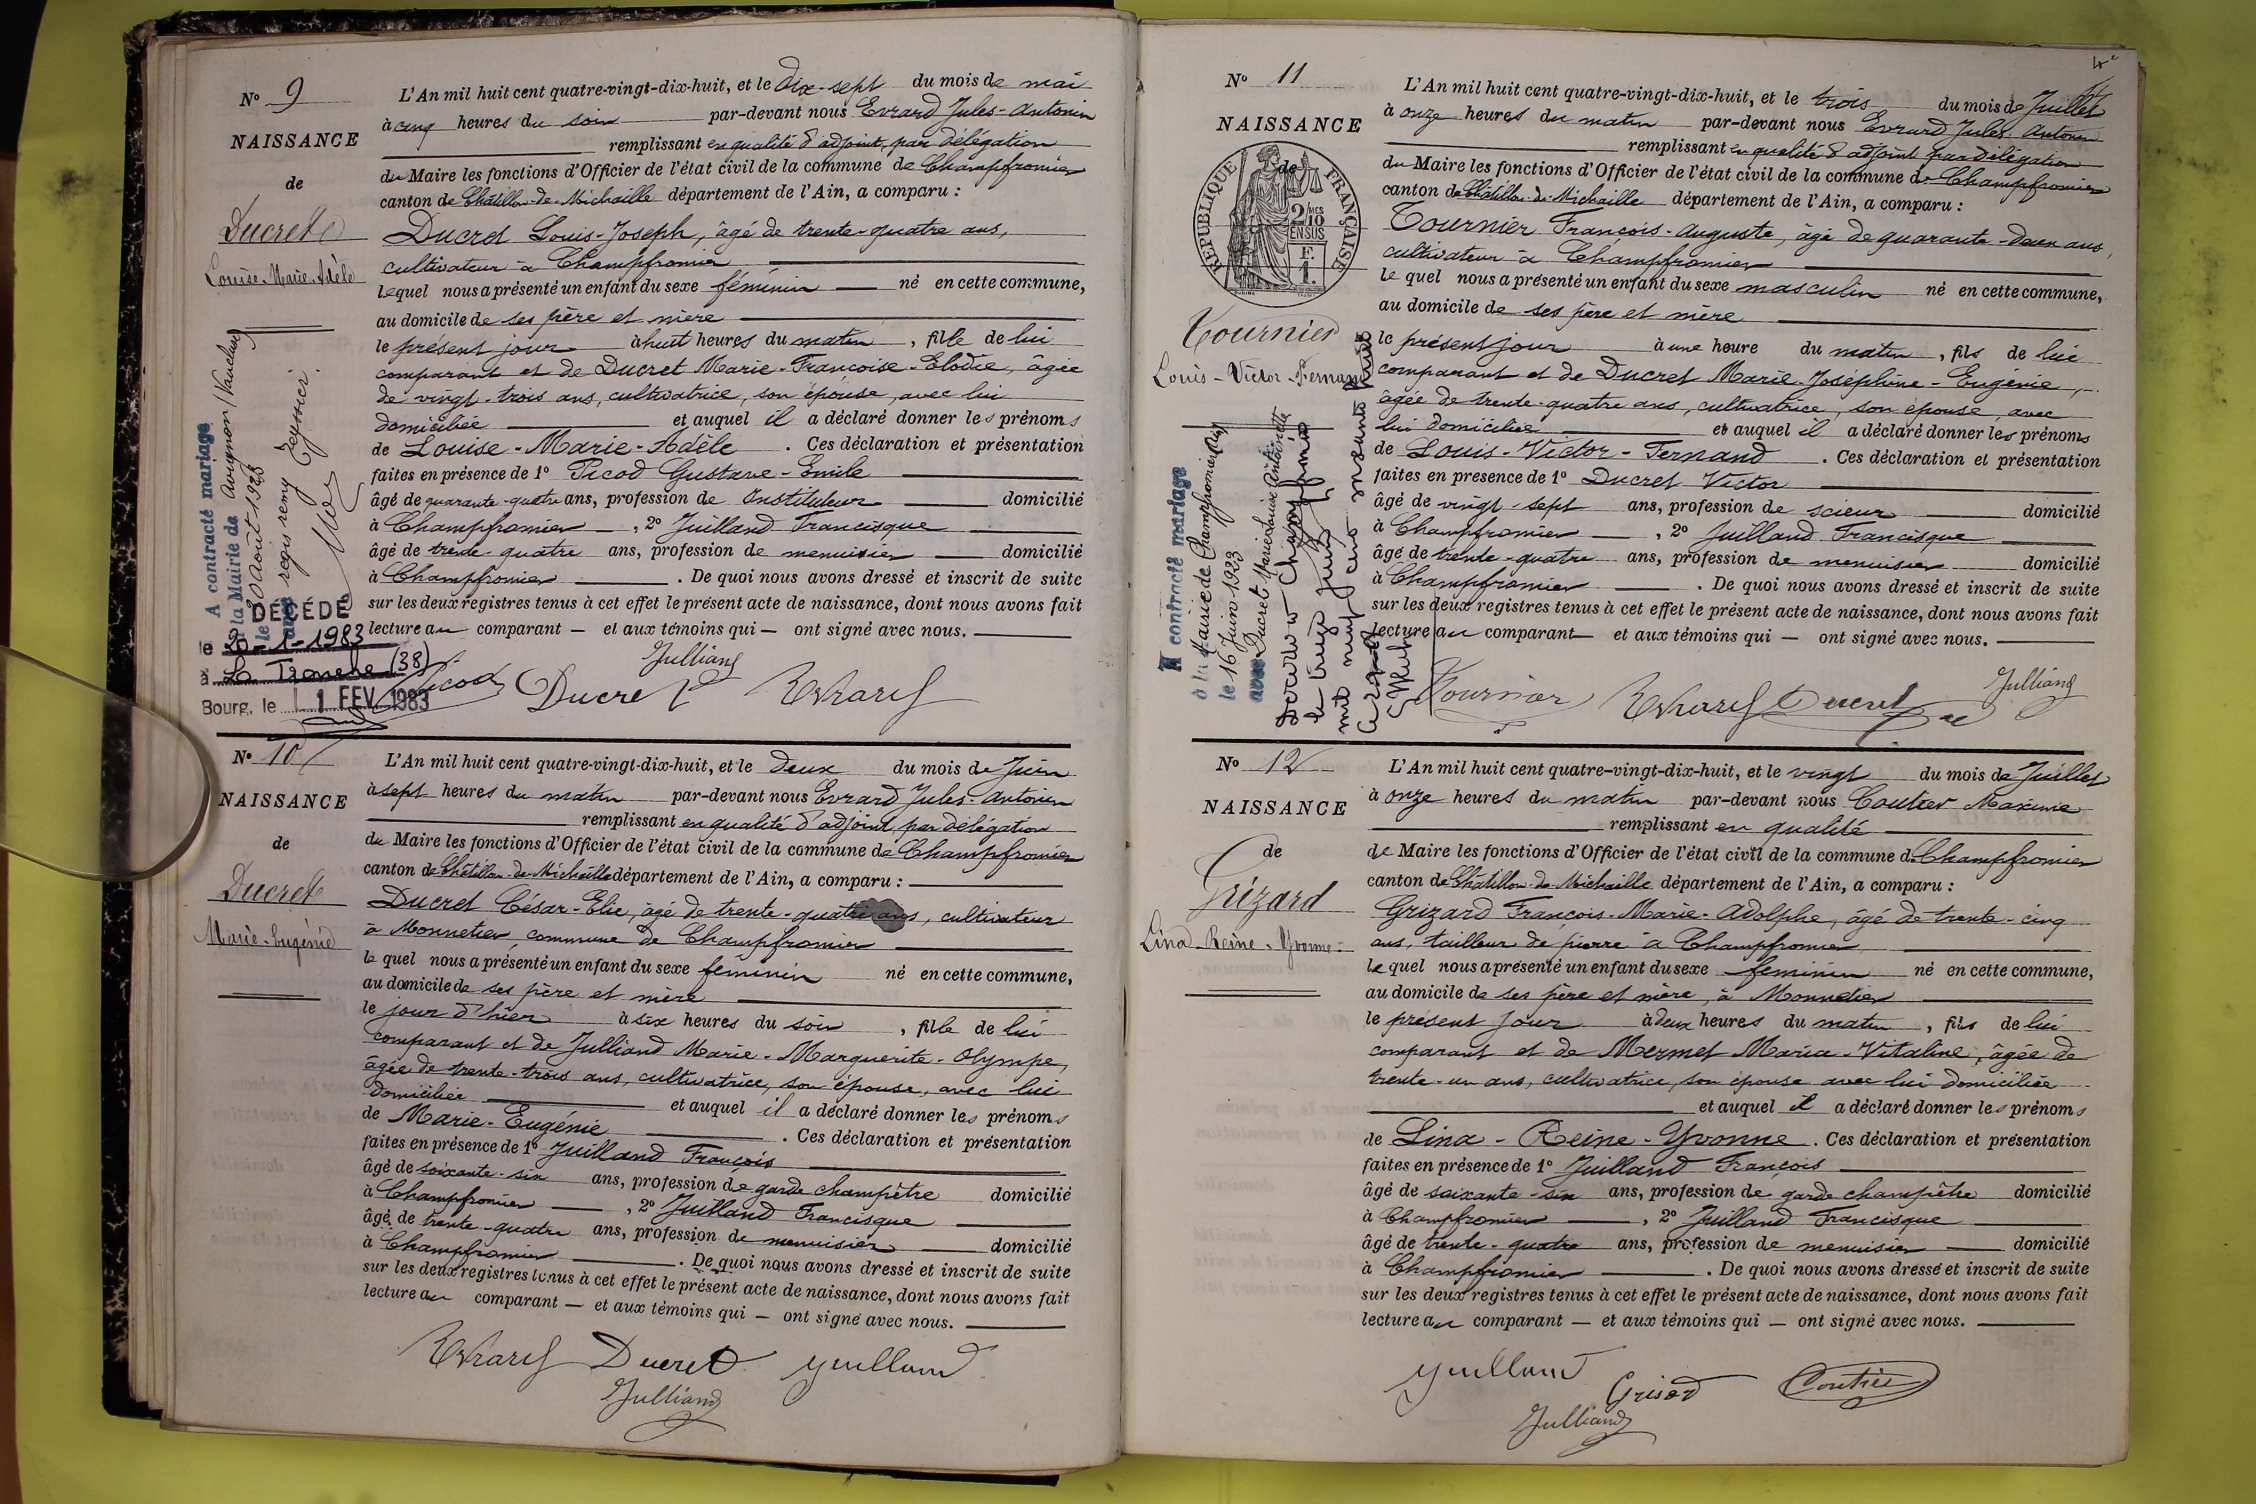 N° 9
NAISSANCE
de
Ducret
Louise-Marie-Adèle
A contracté mariage
à la Mairie de Avignon (Vaucluse)
le 20 août 1928
avec regis remy Teyssier.
DÉCÉDÉ
le 20-1-1983
à La Tronche (38)
Bourg, le 1 FEV. 1983
L'An mil huit cent quatre-vingt-dix-huit, et le dix-sept du mois de mai
à cinq heures du soir par-devant nous Evrard Jules-Antonin
remplissant en qualité d'adjoint, par délégation
du Maire les fonctions d'Officier de l'état civil de la commune de Champfromier
canton de Châtillon-de-Michaille département de l'Ain, a comparu :
Ducret Louis-Joseph, âgé de trente-quatre ans,
cultivateur à Champfromier
lequel nous a présenté un enfant du sexe féminin né en cette commune,
au domicile de ses père et mère
le présent jour à huit heures du matin, fille de lui
comparant et de Ducret Marie-Françoise-Elodie, âgée
de vingt-trois ans, cultivatrice, son épouse, avec lui
domiciliée et auquel il a déclaré donner les prénoms
de Louise-Marie-Adèle. Ces déclaration et présentation
faites en présence de 1° Picod Gustave-Emile
âgé de quarante-quatre ans, profession de Instituteur domicilié
à Champfromier, 2° Juilland Francisque
âgé de trente-quatre ans, profession de menuisier domicilié
à Champfromier. De quoi nous avons dressé et inscrit de suite
sur les deux registres tenus à cet effet le présent acte de naissance, dont nous avons fait
lecture au comparant — et aux témoins qui — ont signé avec nous.
Julliand
Picod Ducret Evrard
N° 10
NAISSANCE
de
Ducret
Marie-Eugénie
L'An mil huit cent quatre-vingt-dix-huit, et le deux du mois de Juin
à sept heures du matin par-devant nous Evrard Jules-Antonin
remplissant en qualité d'adjoint, par délégation
du Maire les fonctions d'Officier de l'état civil de la commune de Champfromier
canton de Châtillon-de-Michaille département de l'Ain, a comparu :
Ducret César-Elie, âgé de trente-quatre ans, cultivateur
à Monnetier commune de Champfromier
lequel nous a présenté un enfant du sexe féminin né en cette commune,
au domicile de ses père et mère
le jour d'hier à six heures du soir, fille de lui
comparant et de Julliand Marie-Marguerite-Olympe,
âgée de trente-trois ans, cultivatrice, son épouse, avec lui
domiciliée et auquel il a déclaré donner les prénoms
de Marie-Eugénie. Ces déclaration et présentation
faites en présence de 1° Juilland François
âgé de soixante-six ans, profession de garde champêtre domicilié
à Champfromier, 2° Juilland Francisque
âgé de trente-quatre ans, profession de menuisier domicilié
à Champfromier. De quoi nous avons dressé et inscrit de suite
sur les deux registres tenus à cet effet le présent acte de naissance, dont nous avons fait
lecture au comparant — et aux témoins qui — ont signé avec nous.
Evrard Ducret Juilland
Julliand
N° 11
NAISSANCE
de
RÉPUBLIQUE FRANÇAISE
2/10 MES
EN SUS
F.
1.
Tournier
Louis-Victor-Fernand
A contracté mariage
à la Mairie de Champfromier (Ain)
le 16 Juin 1923
avec Ducret Marie Louise Antoinette
Décédé à Champfromier
le treize Juin
mil neuf cent soixante huit
L'An mil huit cent quatre-vingt-dix-huit, et le trois du mois de Juillet
à onze heures du matin par-devant nous Evrard Jules-Antonin
remplissant en qualité d'adjoint par délégation
du Maire les fonctions d'Officier de l'état civil de la commune de Champfromier
canton de Châtillon-de-Michaille département de l'Ain, a comparu :
Tournier François-Auguste, âgé de quarante-deux ans,
cultivateur à Champfromier
lequel nous a présenté un enfant du sexe masculin né en cette commune,
au domicile de ses père et mère
le présent jour à une heure du matin, fils de lui
comparant et de Ducret Marie-Joséphine-Eugénie,
âgée de trente-quatre ans, cultivatrice, son épouse, avec
lui domiciliée et auquel il a déclaré donner les prénoms
de Louis-Victor-Fernand. Ces déclaration et présentation
faites en présence de 1° Ducret Victor
âgé de vingt-sept ans, profession de scieur domicilié
à Champfromier, 2° Juilland Francisque
âgé de trente-quatre ans, profession de menuisier domicilié
à Champfromier. De quoi nous avons dressé et inscrit de suite
sur les deux registres tenus à cet effet le présent acte de naissance, dont nous avons fait
lecture au comparant — et aux témoins qui — ont signé avec nous.
Tournier Evrard Ducret Julliand
N° 12
NAISSANCE
de
Grizard
Lina-Reine-Yvonne
L'An mil huit cent quatre-vingt-dix-huit, et le vingt du mois de Juillet
à onze heures du matin par-devant nous Coutier Maxime
remplissant en qualité
de Maire les fonctions d'Officier de l'état civil de la commune de Champfromier
canton de Châtillon-de-Michaille département de l'Ain, a comparu :
Grizard François-Marie-Adolphe, âgé de trente-cinq
ans, tailleur de pierre à Champfromier
lequel nous a présenté un enfant du sexe feminin né en cette commune,
au domicile de ses père et mère, à Monnetier
le présent jour à deux heures du matin, fils de lui
comparant et de Mermet Maria-Vitaline, âgée de
trente-un ans, cultivatrice, son épouse avec lui domiciliée
et auquel il a déclaré donner les prénoms
de Lina-Reine-Yvonne. Ces déclaration et présentation
faites en présence de 1° Juilland François
âgé de soixante-six ans, profession de garde champêtre domicilié
à Champfromier, 2° Juilland Francisque
âgé de trente-quatre ans, profession de menuisier domicilié
à Champfromier. De quoi nous avons dressé et inscrit de suite
sur les deux registres tenus à cet effet le présent acte de naissance, dont nous avons fait
lecture au comparant — et aux témoins qui — ont signé avec nous.
Juilland Grisard Coutier
Julliand